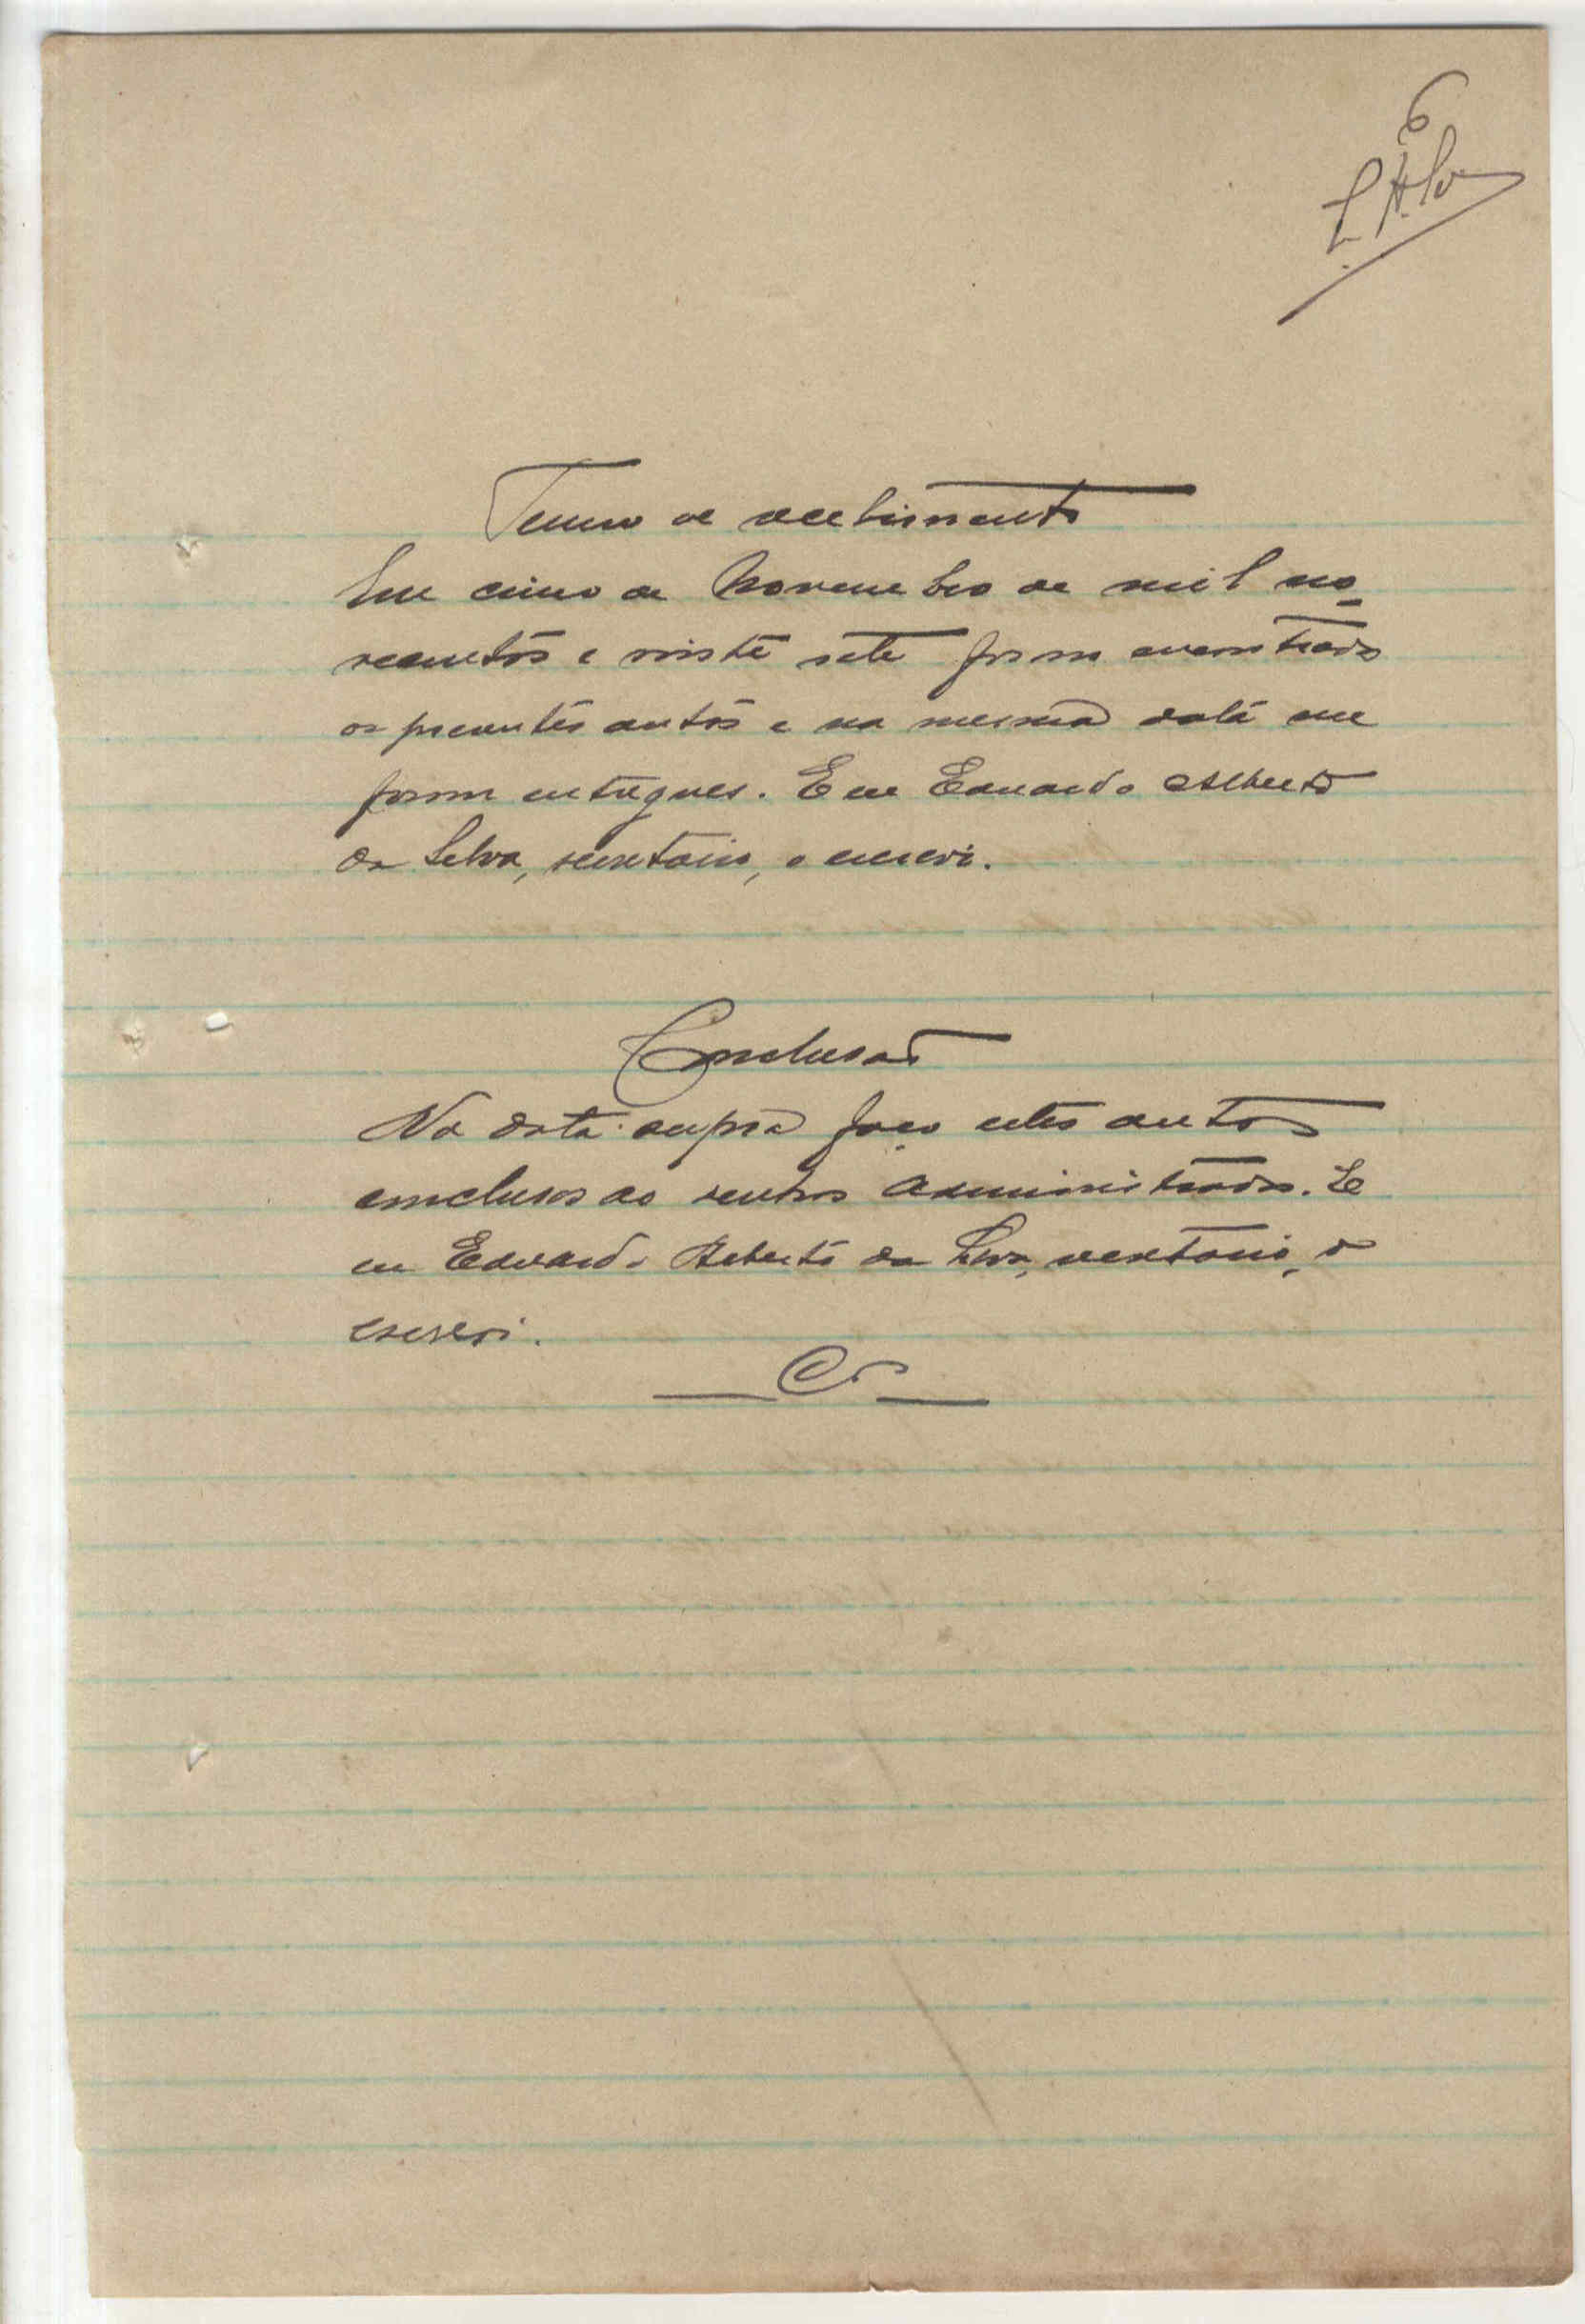 6
Termo de recebimento
Em cinco de Novembro de mil no-
vecentos e vinte sete foram encontrados
os presentes autos e na mesma data me
foram entregues. E eu Eduardo Alberto
da Silva, secretario, o escrevi.
Conclusão
Na data supra faço estes autos
conclusos ao senhor Administrador. E
eu Eduardo Alberto da Silva, secretario, o
escrevi.